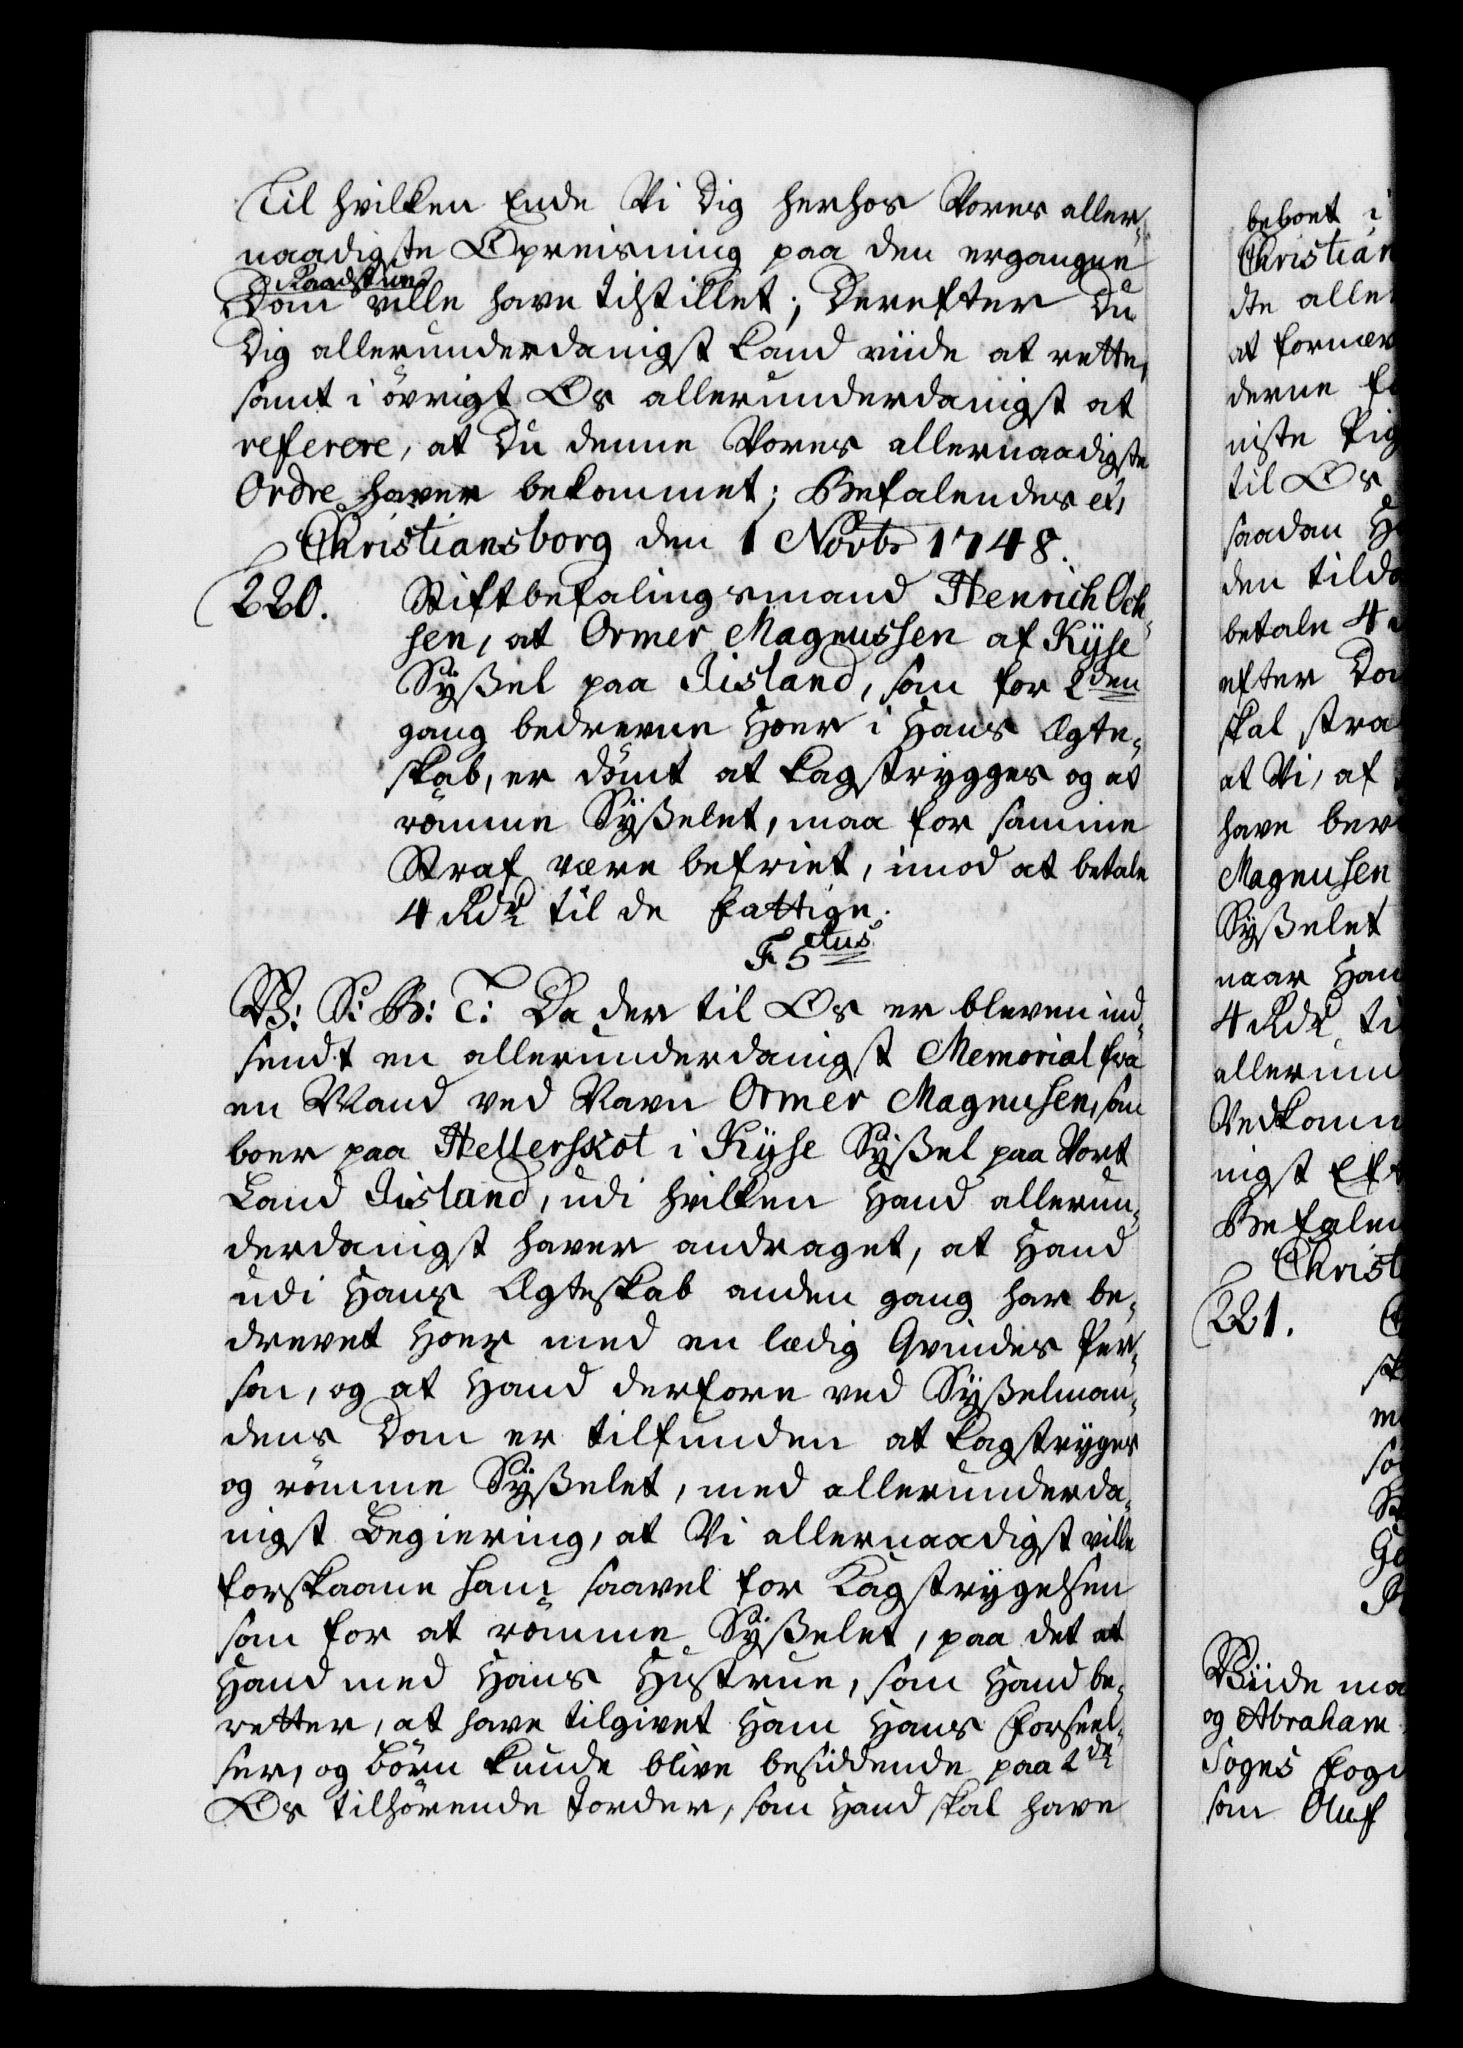 Til hvilken Ende Vi Dig herhos Vores aller-
naadigste Opreisning paa den ergangne
Raadstue
Dom ville have tilstillet; Derefter Du
Dig allerunderdanigst kand viide at rette,
samt i övrigt Os allerunderdanigst at
referere, at Du denne Vores allernaadigste
Ordre haver bekommet; Befalendes etc
Christiansborg den 1 Novbr 1748.
220. Stiftbefalingsmand Henrich Och-
sen, at Ormer Magnussen af Kÿse
Sÿßel paa Iisland, som for 2den
gang bedrevne Hoer i Hans Ægte-
skab, er dömt at kagstrÿgges og at
römme Sÿßelet, maa for samme
Straf være befriet, imod at betale
4 Rdr til de Fattige.
F 5tus
V: S: B: T: Da der til Os er bleven ind-
sendt en allerunderdanigst Memorial fra
en Mand ved Navn Ormer Magnusen, som
boer paa Hellerskot i Kÿse Sÿßel paa Vort
Land Iisland, udi hvilken Hand allerun-
derdanigst haver andraget, at Hand
udi Hans Ægteskab anden gang har be-
drevet Hoer med en lædig Qvindes Per-
son, og at Hand derfore ved Sÿßelman-
dens Dom er tilfunden at kagstrÿges
og römme Sÿßelet, med allerunderda-
nigst Begiering, at Vi allernaadigst ville
forskaane ham saavel for Kagstrÿgelsen
som for at römme Sÿßelet, paa det at
Hand med Hans Hustrue, som Hand be-
retter, at have tilgivet Ham Hans Forseel-
ser, og Börn kunde blive besiddende paa 2de
Os tilhörende Jorder, som Hand skal have
beboet i
Christian
dte aller
at formed
derne
niste Pig
til Os
saadan
den tildö
betale 4
efter Dom
skal stra
at Vi, af
have
Magnusen
Sÿßelet
naar Han
4 Rdr ti
allerun
Vedkomm
nigst Eft
Befalen
Christ
221.
Viide ma
og Abraham
Sogns Fogd
som Oluf